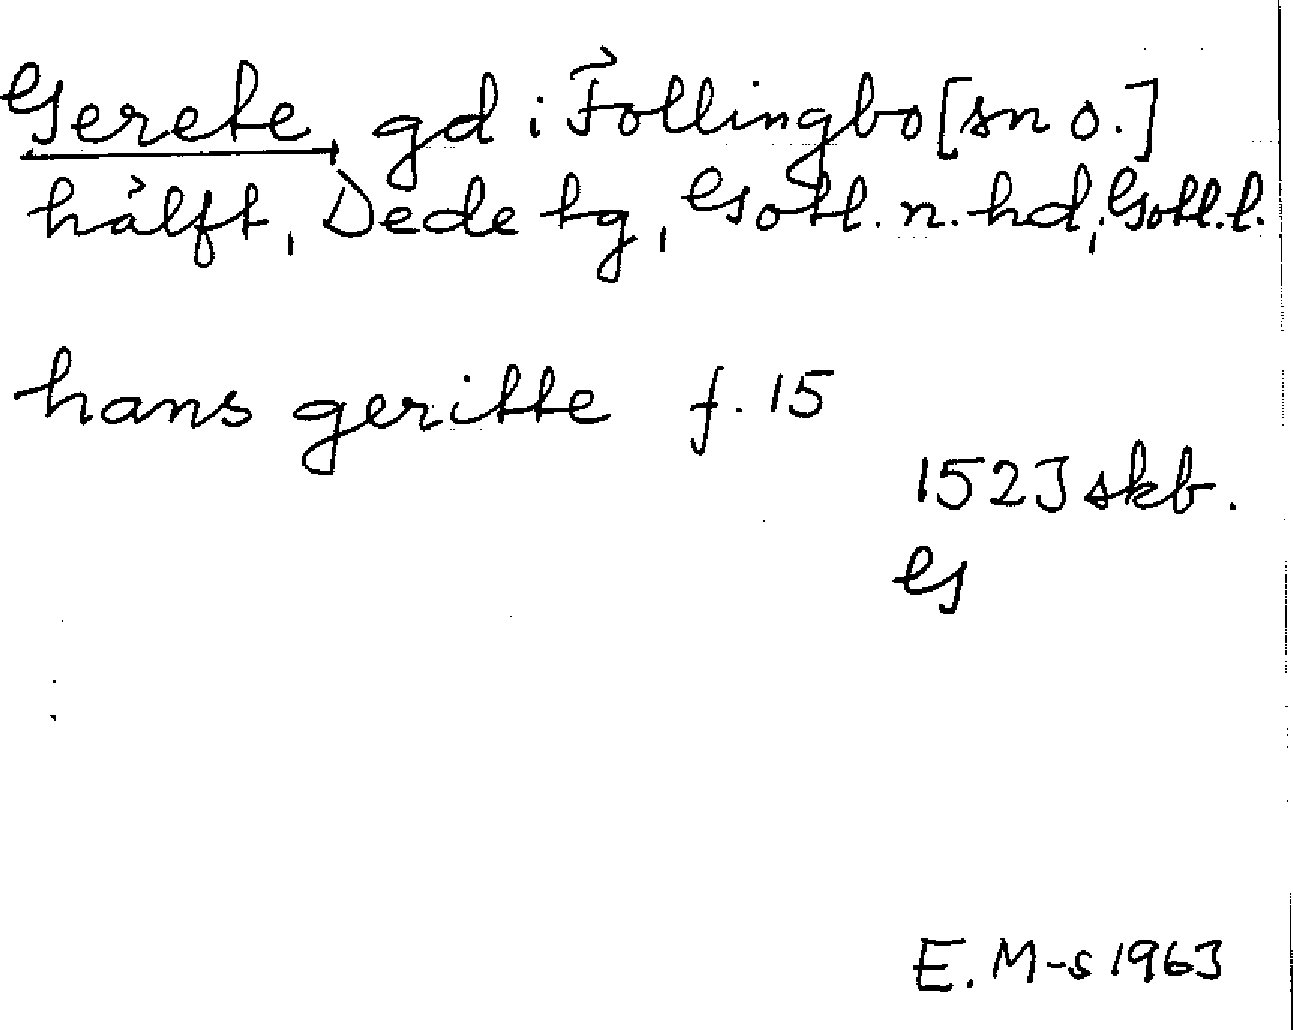 Gerete, gd i Follingbo [sn o.]
hälft, Dede tg, Gotl. n. hd, Gotl. l.
hans geritte f. 15
1523 skb.
G
E. M-s 1963